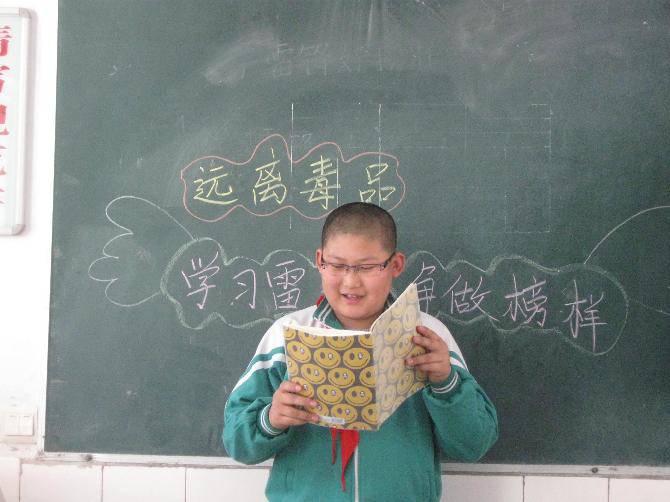 远离毒品
学习雷 争做榜样